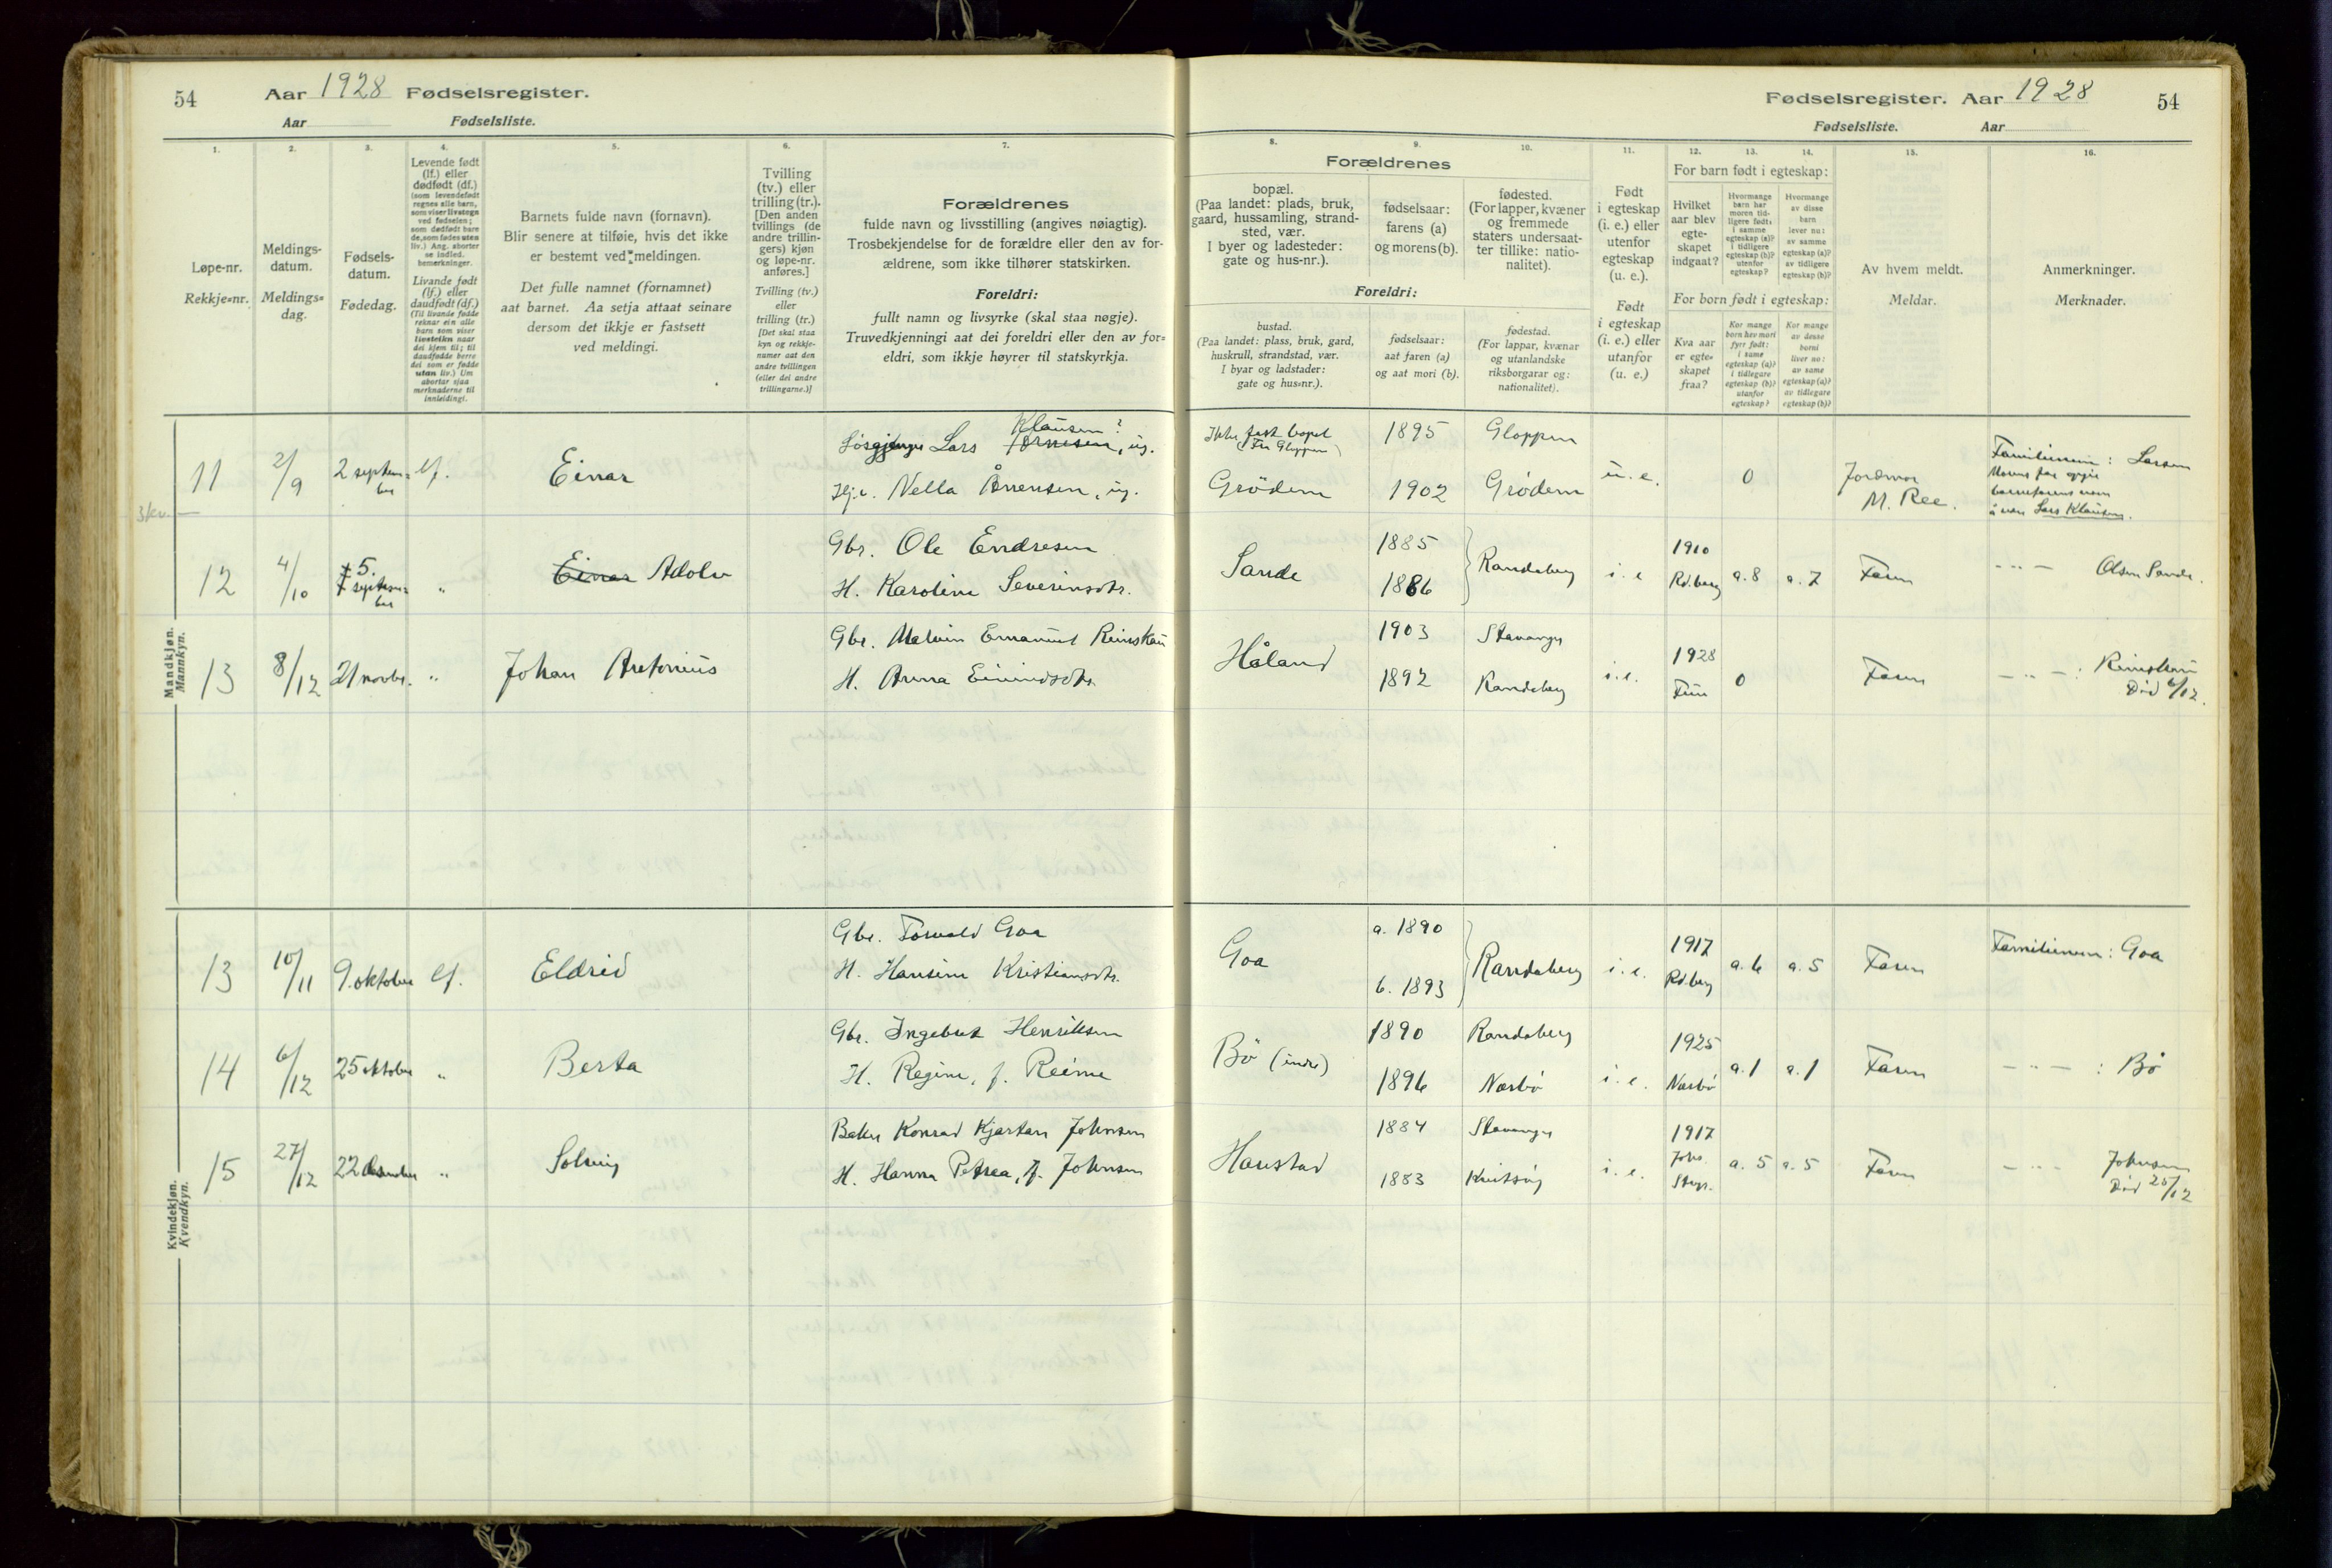 54
Aar 1928 Fødselsregister.
Aar Fødselsliste.
Fødselsregister. Aar 1928
54
Fødselsliste. Aar
1.
2.
3.
4.
5.
6.
7.
8.
9.
10.
11.
12.
13.
14.
15.
16.
Løpe-nr.
Rekkje=nr.
Meldings-
datum.
Meldings=
dag.
Fødsels-
datum.
Fødedag.
Levende født
(lf.) eller
dødfødt (df.)
(som levendefødt
regnes alle barn,
som viser livstegn
ved fødselen;
som dødfødt bare
de, som fødes uten
liv.) Ang. aborter
se indled.
bemerkninger.
Livande født
(lf.) eller
daudfødt (df.)
(Til livande fødde
reknar ein alle
born som viser
livsteikn naar
dei kjem til; til
daudfødde berre
dei som er fødde
utan liv.) Um
abortar sjaa
merknaderne til
innleidingi.
Barnets fulde navn (fornavn).
Blir senere at tilføie, hvis det ikke
er bestemt ved meldingen.
Det fulle namnet (fornamnet)
aat barnet. Aa setja attaat seinare
dersom det ikkje er fastsett
ved meldingi.
Tvilling
(tv.) eller
trilling (tr.).
[Den anden
tvillings (de
andre trillin-
gers) kjøn
og løpe-nr.
anføres.]
Tvilling (tv.)
eller
trilling (tr.)
[Det skal staa
kyn og rekkje-
numer aat den
andre tvillingen
(eller dei andre
trillingarne.)]
Forældrenes
fulde navn og livsstilling (angives nøiagtig).
Trosbekjendelse for de forældre eller den av for-
ældrene, som ikke tilhører statskirken.
Foreldri:
fullt namn og livsyrke (skal staa nøgje).
Truvedkjenningi aat dei foreldri eller den av for=
eldri, som ikkje høyrer til statskyrkja.
Forældrenes
bopæl.
(Paa landet: plads, bruk,
gaard, hussamling, strand-
sted, vær.
I byer og ladesteder:
gate og hus-nr.).
fødselsaar:
farens (a)
og morens (b).
fødested.
(For lapper, kvæner
og fremmede
staters undersaat-
ter tillike: natio-
nalitet).
Foreldri:
bustad.
(Paa landet: plass, bruk, gard,
huskrull, strandstad, vær.
I byar og ladstader:
gate og hus=nr.).
fødselsaar:
aat faren (a)
og aat mori (b).
fødestad.
(For lappar, kvænar
og utanlandske
riksborgarar og:
nationalitet).
Født
i egteskap
(i. e.) eller
utenfor
egteskap
(u. e.).
Født
i egteskap
(i. e.) eller
utanfor
(u. e.)
For barn født i egteskap:
Hvilket
aar blev
egte-
skapet
indgaat?
Hvormange
barn har
moren tid-
ligere født:
i samme
egteskap (a)?
i tidligere
egteskap (b)?
utenfor
egteskap?
Hvormange
av disse
barn
lever nu:
av samme
egteskap (a)?
av tidligere
egteskap (b)?
For born født i egteskap:
Kva aar
er egte=
skapet
fraa?
Kor mange
born hev mori
fyrr født:
i same
egteskap (a)?
i tidlegare
egteskap (b)?
utanfor
egteskap?
Kor mange
av desse
borni
liver no:
av same
egteskap (a)?
av tidlegare
egteskap (b)?
Av hvem meldt.
Meldar.
Anmerkninger.
Merknader.
Mandkjøn.
Mannkyn.
11 2/9 2 septem=ber lf. Einar
Løsgjenger Lars Klausen?, ug.
Hj.v. Nella Årrensen, ug.
Ikke fast bopel
(Fra Gloppen)
Grødem
1895 Gloppen
1902 Grødem
u. e. 0
Jordmor
M. Ree.
Familienavn: Larsen
Morens far opgir
barnefarens navn
å være Lars Klausen.
3 kv.
12 4/10 5. septem=ber " Einar Adolv
Gbr. Ole Endresen
H. Karoline Severinsdtr.
Sande
1885
1886
Randaberg i. e 1910
Rd.berg a. 8 a. 7 Faren
— " — Olsen Sande.
13 8/12 21 novbr. " Johan Antonius
Gbr. Malvin Emanuel Reinskau
H. Anna Eivindsdtr.
Håland
1903 Stavanger
1892 Randaberg
i. e. 1928 0 Faren
— " — : Reinskau
Død 6/12.
Kvindekjøn.
Kvendkyn.
13 10/11 9. oktober lf. Eldrid
Gbr. Torvald Goa
H. Hansine Kristiansdtr.
Goa
a. 1890
b. 1893
Randaberg i. e. 1917
Rd.berg a. 6 a. 5 Faren
Familienavn: Goa
14 6/12 25 oktober " Berta
Gbr. Ingebret Henriksen
H. Regine, f. Reime
Bø (indre)
1890 Randaberg
1896 Nærbø
i. e. 1925
Nærbø a. 1 a. 1 Faren
— " — : Bø
15 27/12 22 desember " Solveig
Baker Konrad Kjartan Johnsen
H. Hanna Petrea, f. Johnsen
Harestad
1884 Stavanger
1883 Kvitsøy
i. e. 1917
Joh.
Stvgr. a. 5 a. 5 Faren
— " — Johnsen
Død 25/12